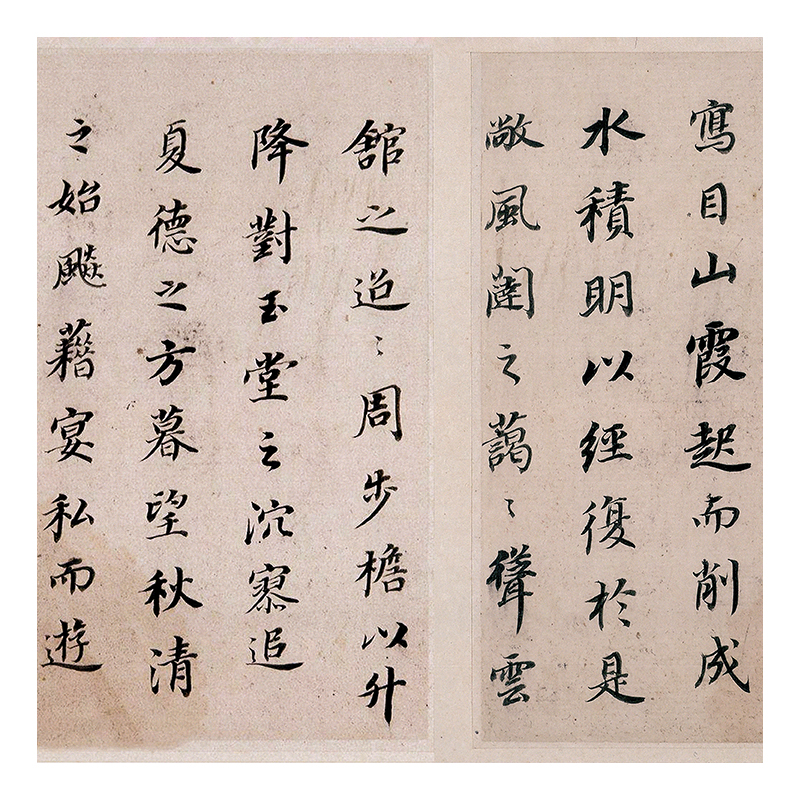 寫目山霞起而削成
水積明以經復於是
敞風閨之藹〻聳雲
館之迢〻周步檐以升
降對玉堂之泬寥追
夏德之方暮望秋清
之始飈藉宴私而遊